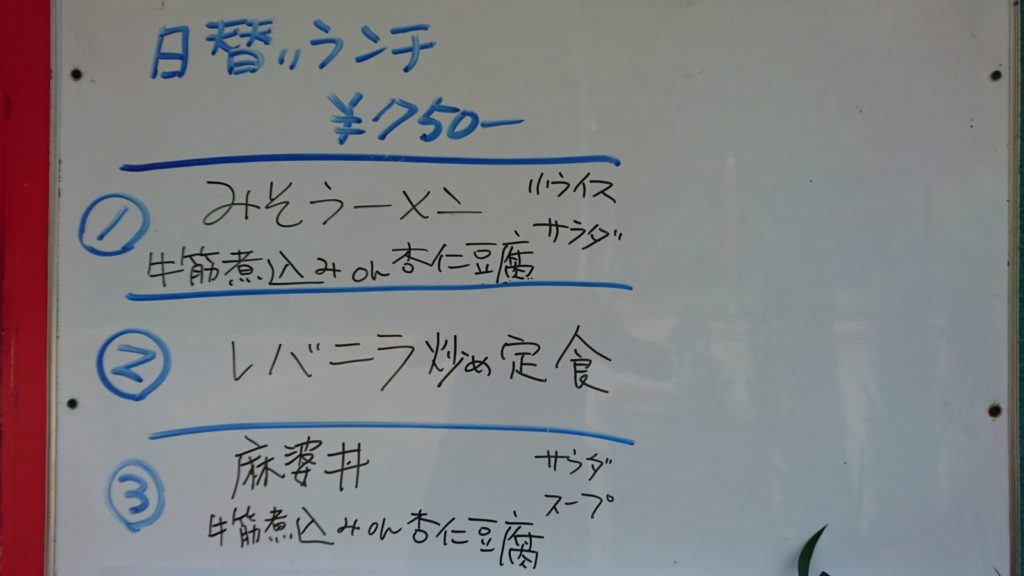 日替りランチ
¥750ー
① みそラーメン 小ライス
サラダ
牛筋煮込み or 杏仁豆腐
② レバニラ炒め定食
③ 麻婆丼 サラダ
スープ
牛筋煮込み or 杏仁豆腐